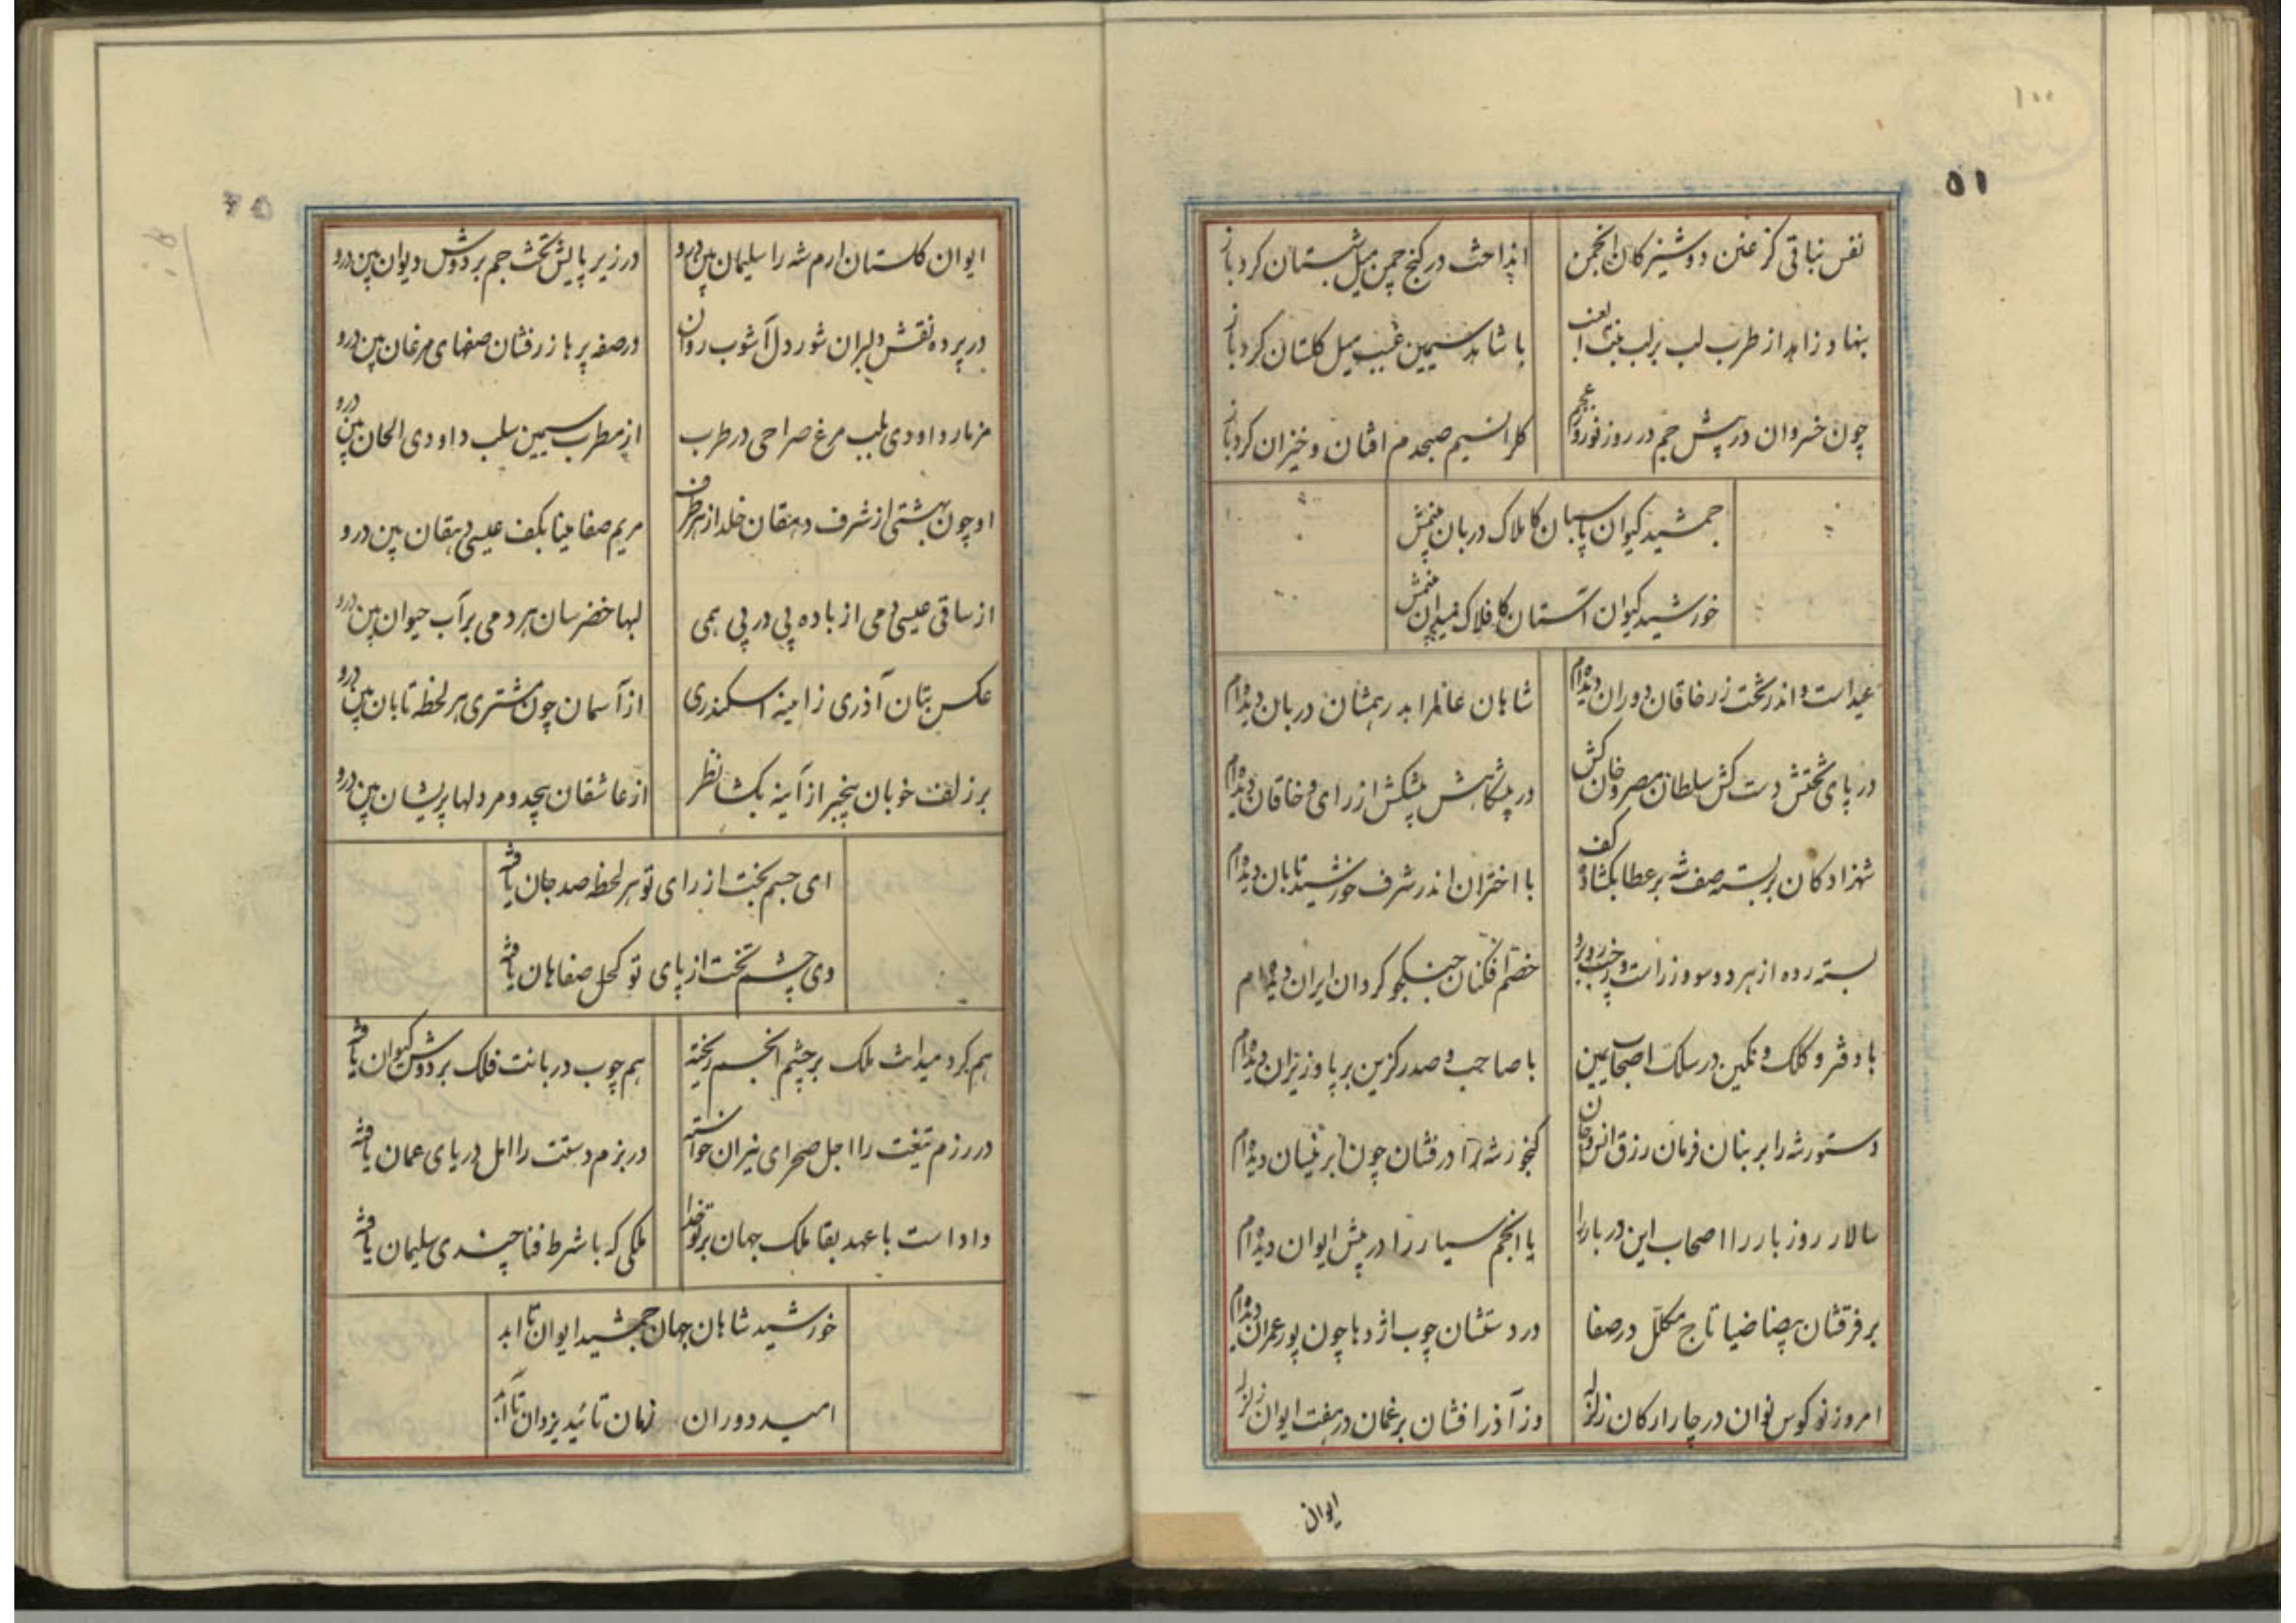 ۱۰۰
۵۱
نفس نباتی کز عنن دوشیزکان انجمن
انداخت در کنج چمن میل شبستان کرد باز
بنهاد زاهد از طرب لب بر لب بنت العنب
با شاهد سیمین غبب میل کلستان کرد باز
چون خسروان در پیش جم در روز نوروز عجم
کلرا نسیم صبحدم افتان و خیزان کرد باز
جمشید کیوان پاسبان کاملاک دربان بینمش
خورشید کیوان آستان کافلاک میدان بینمش
عید است و اندر تخت زر خاقان دوران دیده‌ام
شاهان عالم را بدر رهشان دربان دیده‌ام
در پای تختش دست کش سلطان مصر و خان کش
در پیشکاهش پیشکش از رای و خاقان دیده‌ام
شهزادکان بر بسته صف شه بر عطا بکشاده کف
با اختران اندر شرف خورشید تابان دیده‌ام
بسته رده از هر دو سو وز راست وز چپ
خصم افکنان جنکجو کردان ایران دیده‌ام
با دفتر و کلک و نکین در سلک اصحاب یمین
با صاحب و صدر کزین بر پا وزیران دیده‌ام
دستور شه را بر بنان فرمان رزق انس و جان
کنجور شه را در فشان چون ابر نیسان دیده‌ام
سالار روز بار را اصحاب این دربار را
یا انجم سیار را در پیش ایوان دیده‌ام
بر فرقشان بیضا ضیا تاج مکلل در صفا
در دستشان چوب اژدها چون پور عمران دیده‌ام
امروز نو کوس نوان در چار ارکان زلزله
وز آذر افشان برغمان در هفت ایوان زلزله
ایوان
ایوان کلستان ارم شه را سلیمان بین درو
در زیر پایش تخت جم بر دوش دیوان بین درو
در پرده نقش دلبران شور دل آشوب روان
در صفه پرها زرفشان صفهای مرغان بین درو
مزمار داودی بلب مرغ صراحی در طرب
از مطرب سیمین سلب داودی الحان بین درو
او چون بهشتی از شرف دهقان خلد از هر طرف
مریم صفا مینا بکف عیسی دهقان بین درو
از ساقی عیسی دمی از باده پی در پی همی
لبها خضرسان هر دمی بر آب حیوان بین درو
عکس بتان آذری ز آمینه اسکندری
از آسمان چون مشتری هر لحظه تابان بین درو
بر زلف خوبان بیخبر از آینه بکشا نظر
از عاشقان بیحد و مر دلها پریشان بین درو
ای جسم بخت از رای تو هر لحظه صد جان یافته
وی چشم تخت از پای تو کحل صفاهان یافته
هم کرد میدانت ملک بر چشم انجم ریخته
هم چوب دربانت فلک بر دوش کیوان یافته
در رزم تیغت را اجل صحرای نیران خواسته
در بزم دستت را امل دریای عمان یافته
داد است با عهد بقا ملک جهان بر تو خدا
ملکی که با شرط فنا چندی سلیمان یافته
خورشید شاهان جهان جمشید ایوان تا ابد
امید دوران زمان تائید یزدان تا ابد